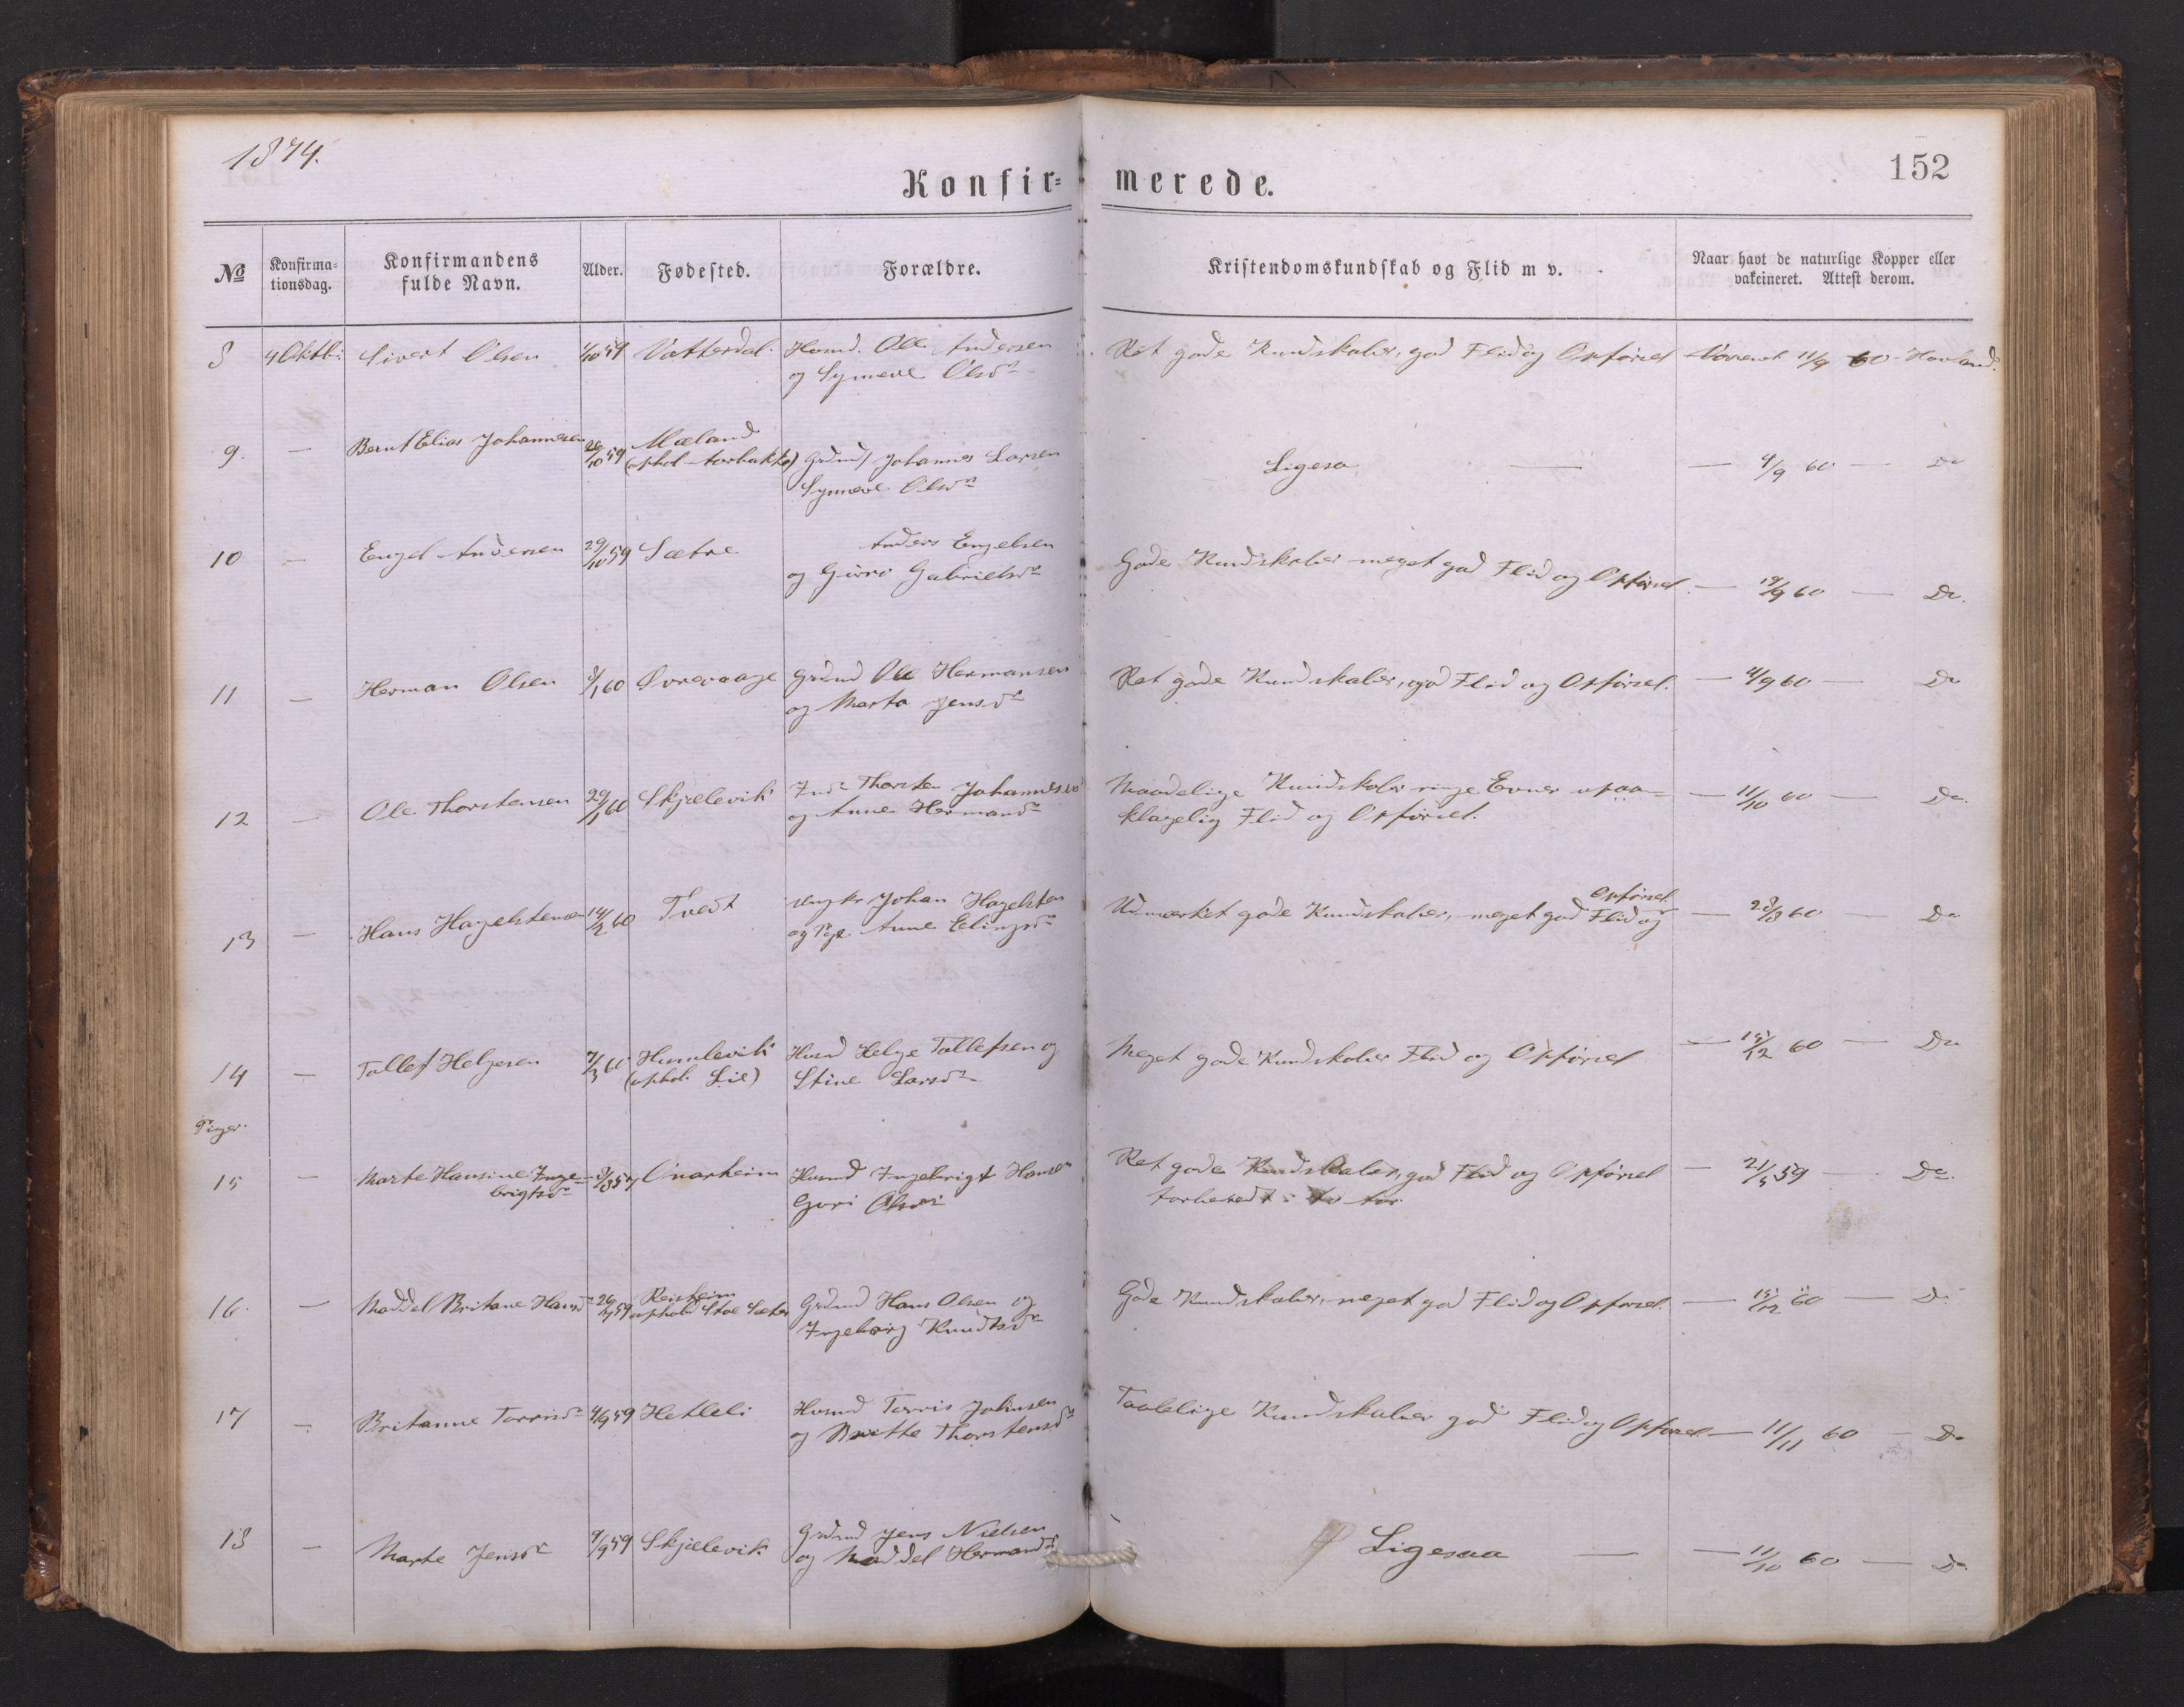 1874.
152
Konfir= merede.
No
Konfirma=
tionsdag.
Konfirmandens
fulde Navn.
Alder.
Fødested.
Forældre.
Kristendomskundskab og Flid m v.
Naar havt de naturlige Kopper eller
vakcineret. Attest derom.
8 4 Oktbr Sivert Olsen 59 Vatterdal. Husmd. Ole Andersen Ret gode Kundskaber, god Flid og Opførsel 11/9 60 Havland.
og Synneve Olsdr
9. — Bernt Elias Johannesen 26/10 59 Mæland
(ophol Grdmd Johannes Larsen Ligesa — — 4/9 60 — Do
Synneve Olsdr
10 — Engel Andersen 29/10 59 Sætre Anders Engelsen Gode Kundskaber meget god Flid og Opførsel. — 19/9 60 — Do.
og Guro Gabrielsdr
11 — Herman Olsen 8/1 60 Øvrevaage Grdmd Ole Hermansen Ret gode Kundskaber, god Flid og Opførsel. — 4/9 60 — Do
og Marta Jensdr
12 — Ole Thorstensen 29/1 60 Skjelevik Indr Thorsten Johannessen Maadelige Kundskaber ringe Evner upaa= — 11/10 60 — Do.
og Anne Hermansdr klagelig Flid og Opførsel.
13 — Hans Hagelstensen 14/2 60 Tvedt Ungkr Johan Hagelsten Udmærket gode Kundskaber, meget god Flid og Opførsel — 28/3 60 — Do
og Pge. Anne Elingsdr
14 — Tollef Helgesen 7/3 60 Humlevik Husmd Helge Tollefsen og Meget gode Kundskaber Flid og Opførsel — 15/12 60 — Do
(ophol. Lie) Stine Larsdr
Piger.
15 — Marte Hansine Inge= Onarheim Husmd Ingebrigt Hansen Ret gode Kundskaber, god Flid og Opførsel — 21/5 59 — Do.
brigtsdr Guri Olsdr forberedt i to Aar
16. — Maddel Britane Hansdr 26/7 59 Reisheim Grdmd Hans Olsen og Gode Kundskaber, meget god Flid og Opførsel. — 15/12 60 — Do
ophold Stoe Sæter Ingeborg Knudtsdr
17 — Britanne Torrisdr 4/9 59 Hetleli Husmd Torris Johnsen Taalelige Kundskaber god Flid og Opførsel — 11/11 60 — Do
og Britte Thorstensdr
18 — Marte Jensdr 9/9 59 Skjelevik Grdmd Jens Nielsen Ligesaa — — 11/10 60 — Do
og Maddel Hermansdr